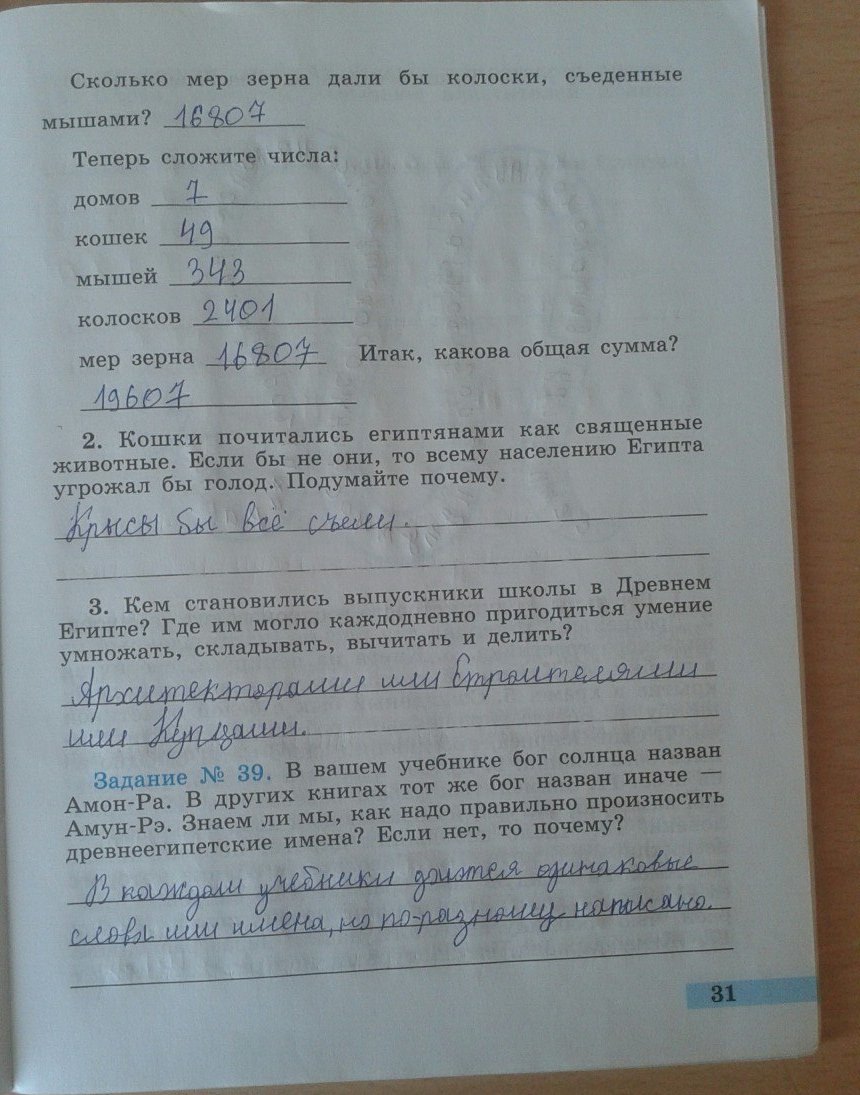 Сколько мер зерна дали бы колоски, съеденные
мышами? 16807
Теперь сложите числа:
домов 7
кошек 49
мышей 343
колосков 2401
мер зерна 16807 Итак, какова общая сумма?
19607
2. Кошки почитались египтянами как священные
животные. Если бы не они, то всему населению Египта
угрожал бы голод. Подумайте почему.
Крысы бы всё съели.
3. Кем становились выпускники школы в Древнем
Египте? Где им могло каждодневно пригодиться умение
умножать, складывать, вычитать и делить?
Архитекторами или Строителями
или Купцами.
Задание № 39. В вашем учебнике бог солнца назван
Амон-Ра. В других книгах тот же бог назван иначе —
Амун-Рэ. Знаем ли мы, как надо правильно произносить
древнеегипетские имена? Если нет, то почему?
В каждом учебники одинаковые
слова или имена, но по-разному написано.
31